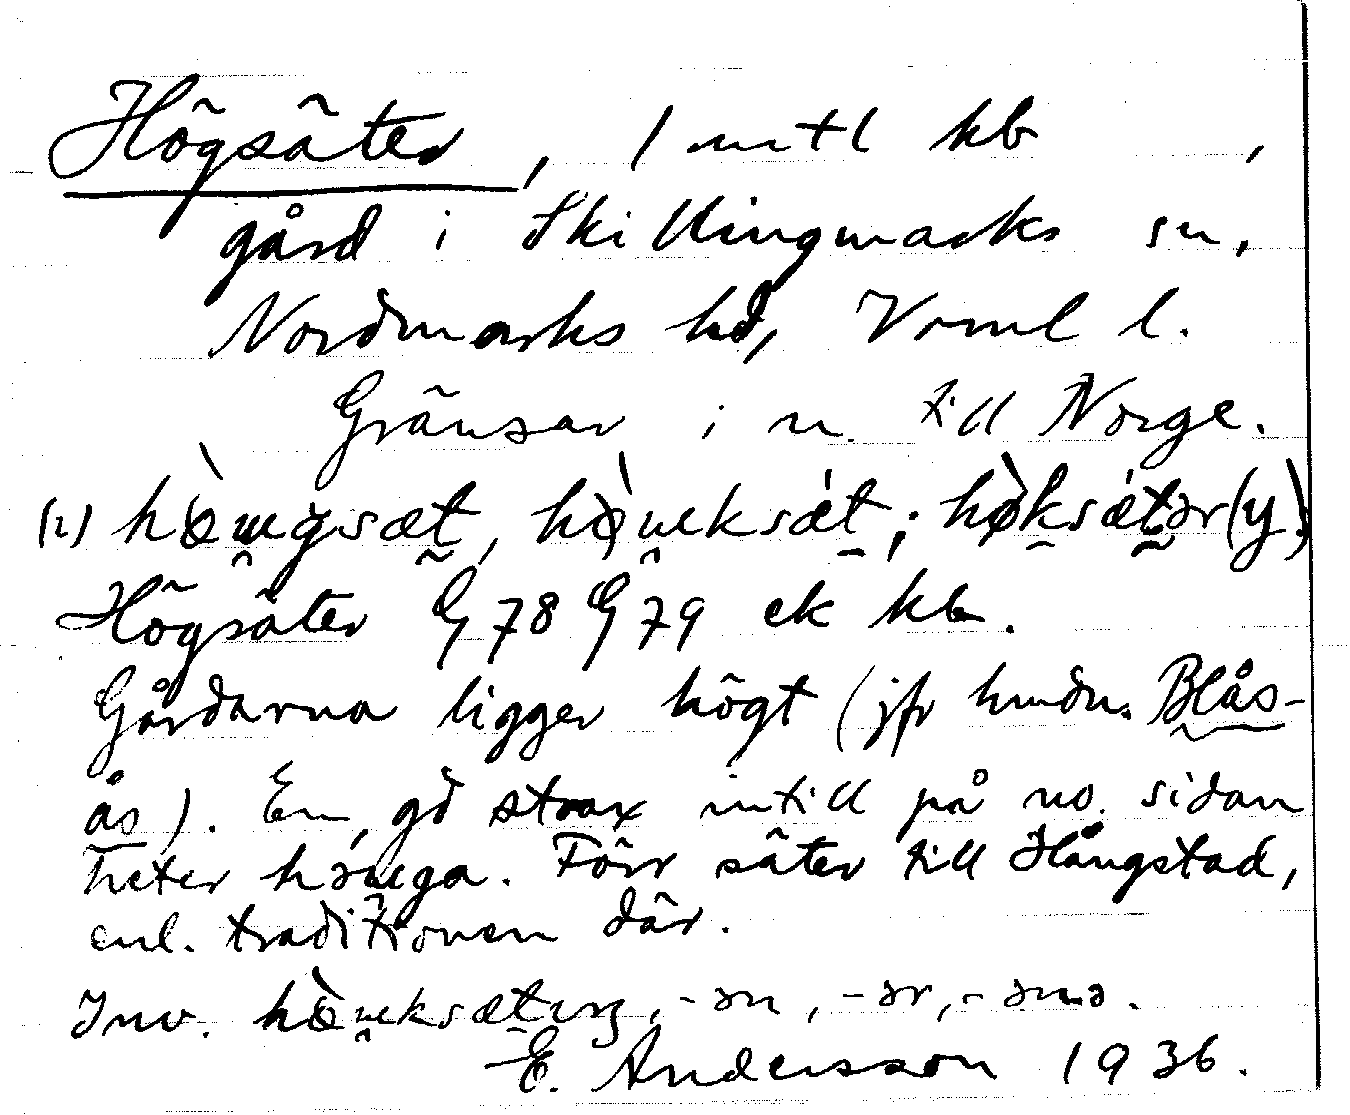 Högsäter, 1 mtl kb,
gård i Skillingmarks sn,
Nordmarks hd, Värml l.
Gränsar i n. till Norge.
Högsäter G78 G79 ek kb.
Gårdarna ligger högt (jfr hmdn. Blås-
ås). En gd strax intill på no. sidan
heter. Förr säter till Hångstad,
enl. traditionen där.
Inv. -ən, -ər, -ənə.
E. Andersson 1936.